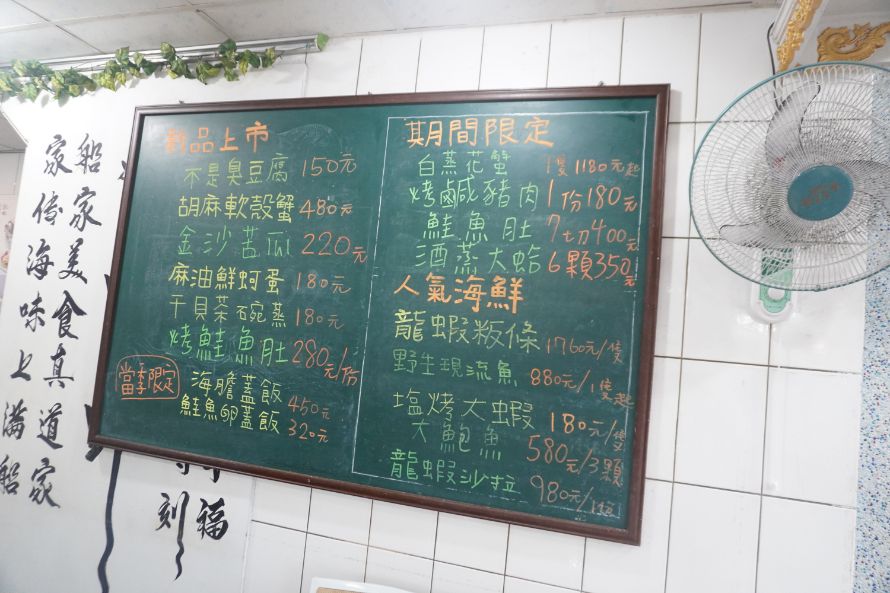 新品上市
不是臭豆腐 150元
胡麻軟殼蟹 480元
金沙苦瓜 220元
麻油鮮蚵蛋 180元
干貝茶碗蒸 180元
烤鮭魚肚 280元/份
當季限定
海膽蓋飯 450元
鮭魚卵蓋飯 320元
期間限定
白蒸花蟹 1隻1180元起
烤鹹豬肉 1份180元
鮭魚肚 7切400元
酒蒸大蛤 6顆350元
人氣海鮮
龍蝦粄條 1760元/隻
野生現流魚 880元/1隻起
塩烤大蝦 180元/隻
大鮑魚 580元/3顆
龍蝦沙拉 980元/1隻
船家美食真道家
家傳海味上滿船
刻
福